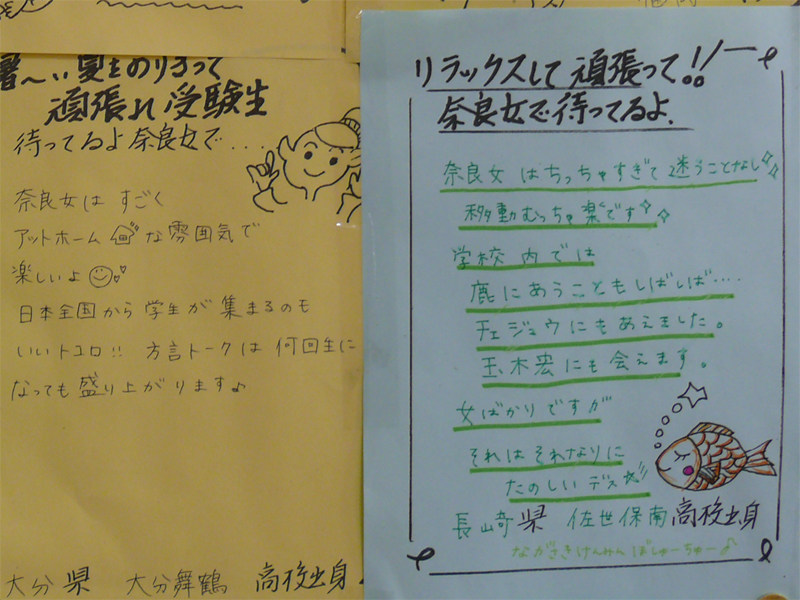 暑〜い夏をのりきって
頑張れ受験生
待ってるよ奈良女で....
奈良女は すごく
アットホームな雰囲気で
楽しいよ
日本全国から学生が集まるのも
いいトコロ!! 方言トークは何回生に
なっても盛り上がります♪
大分県 大分舞鶴 高校出身
リラックスして頑張って!!
奈良女で待ってるよ.
奈良女はちっちゃすぎて迷うことなし
移動むっちゃ楽です
学校内では
鹿にあうこともしばしば....
チェジュウにもあえました。
玉木宏にも会えます。
女ばかりですが
それはそれなりに
たのしいデス
長崎県 佐世保南高校出身
ながさきけんみんばしゅーちゅー♪